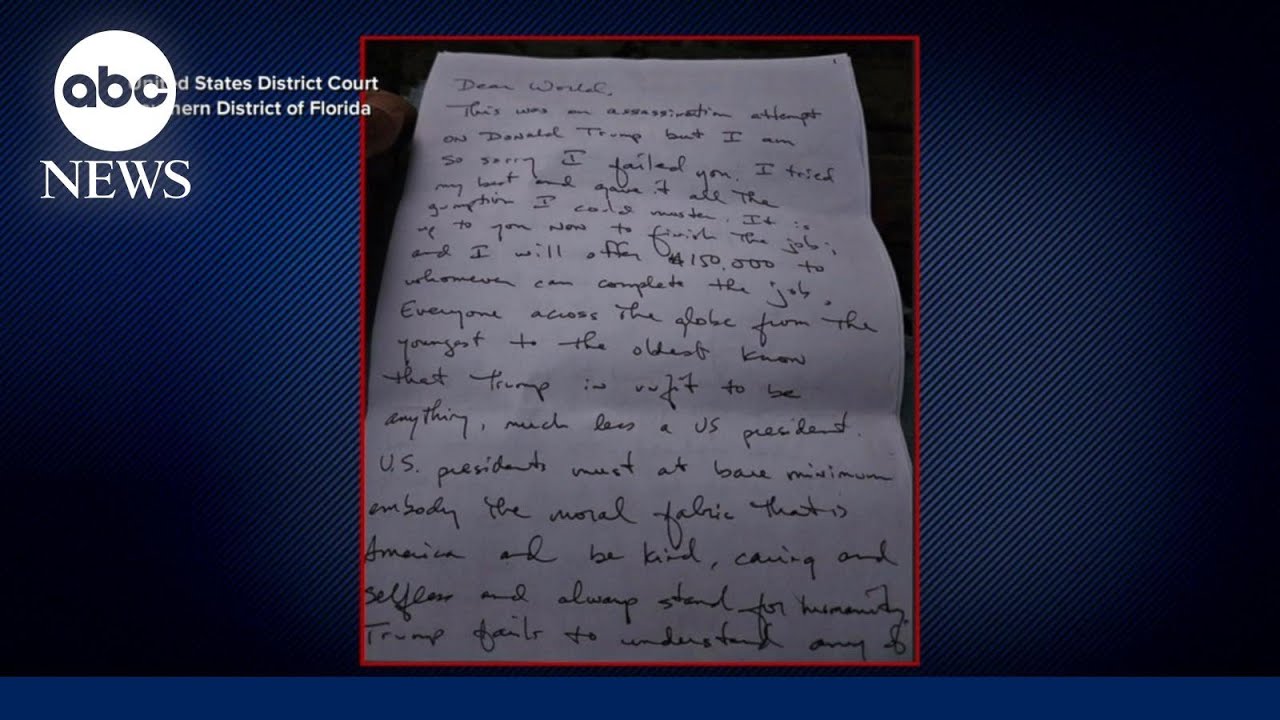 abc
NEWS
United States District Court
Southern District of Florida
Dear World,
This was an assassination attempt
on Donald Trump but I am
so sorry I failed you. I tried
my best and gave it all the
gumption I could muster. It is
up to you now to finish the job;
and I will offer $150,000 to
whomever can complete the job.
Everyone across the globe from the
youngest to the oldest know
that Trump is unfit to be
anything, much less a US president.
U.S. presidents must at bare minimum
embody the moral fabric that is
America and be kind, caring and
selfless and always stand for humanity.
Trump fails to understand any of